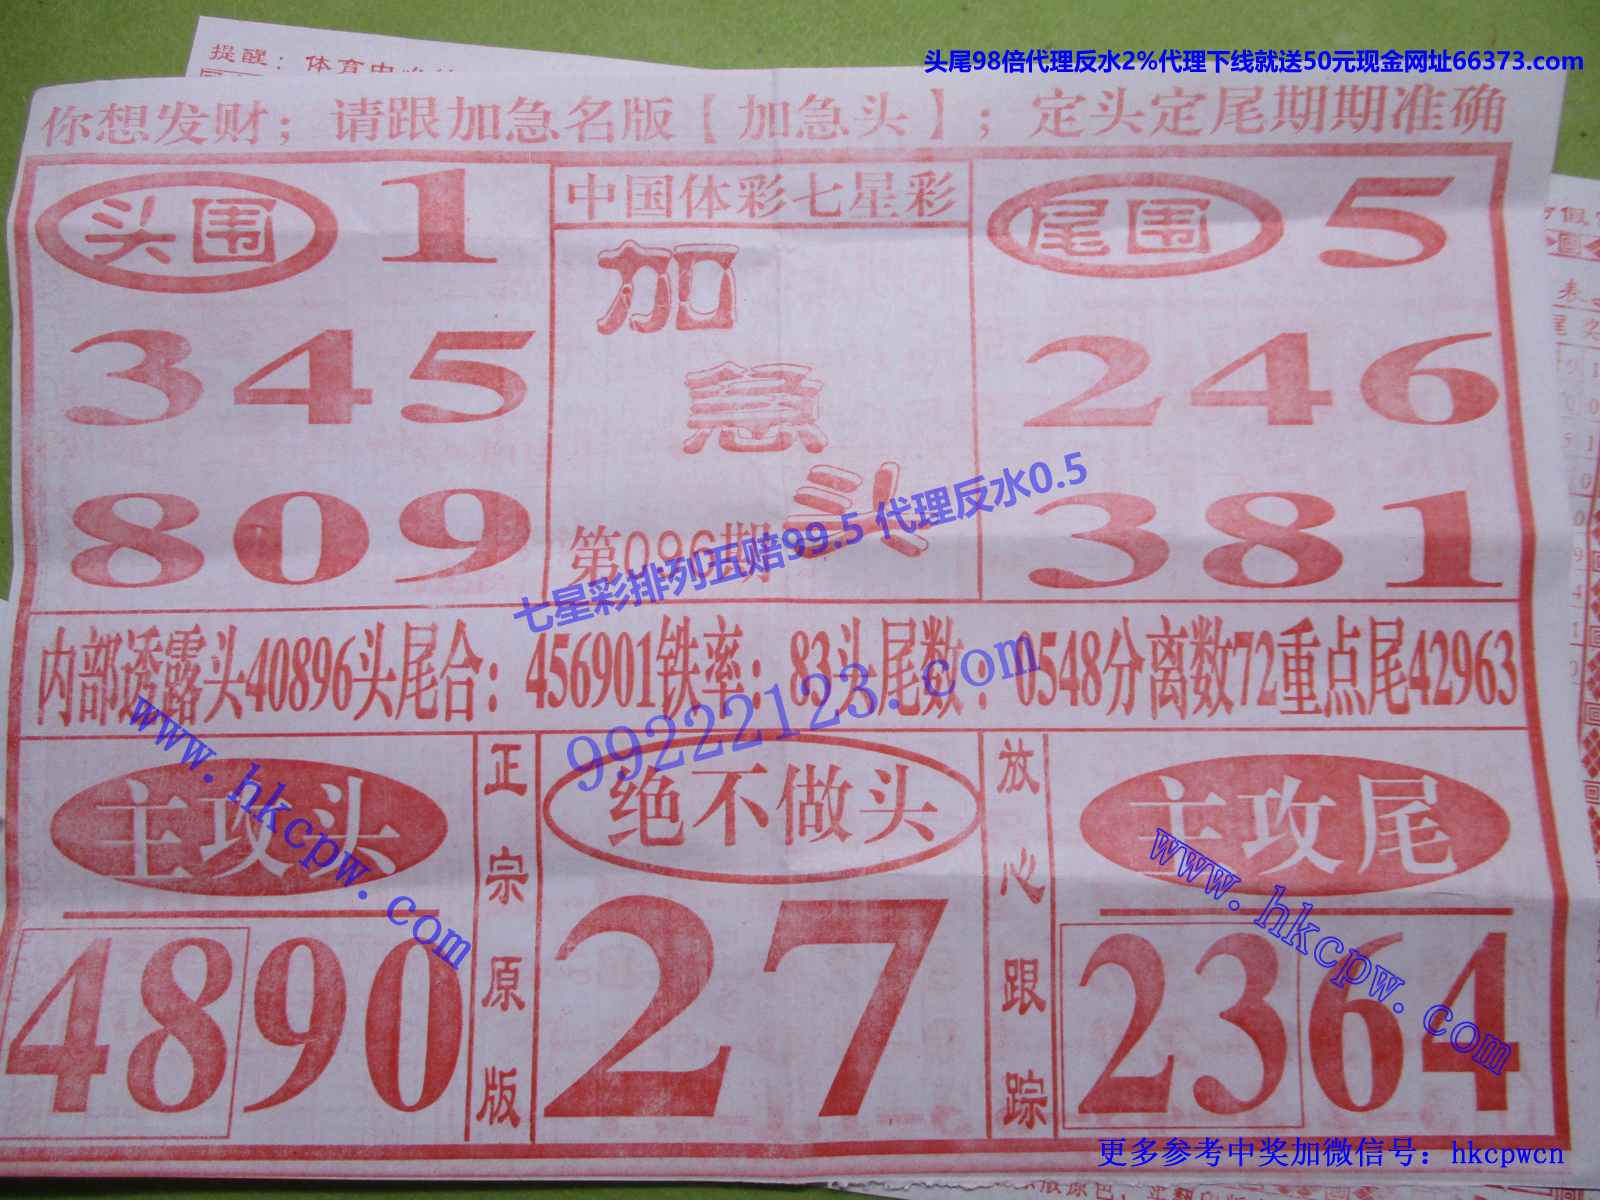 提醒：体育中
头尾98倍代理反水2%代理下线就送50元现金网址66373.com
你想发财；请跟加急名版【加急头】；定头定尾期期准确
头围 1
345
809
中国体彩七星彩
加
急
头
第096期
尾围 5
246
381
七星彩排列五赔99.5 代理反水0.5
内部透露头40896头尾合：456901铁率：83头尾数：0548分离数72重点尾42963
99222123.com
www.hkcpw.com
主攻头
4890
正宗原版
绝不做头
27
放心跟踪
主攻尾
www.hkcpw.com
2364
更多参考中奖加微信号：hkcpwcn